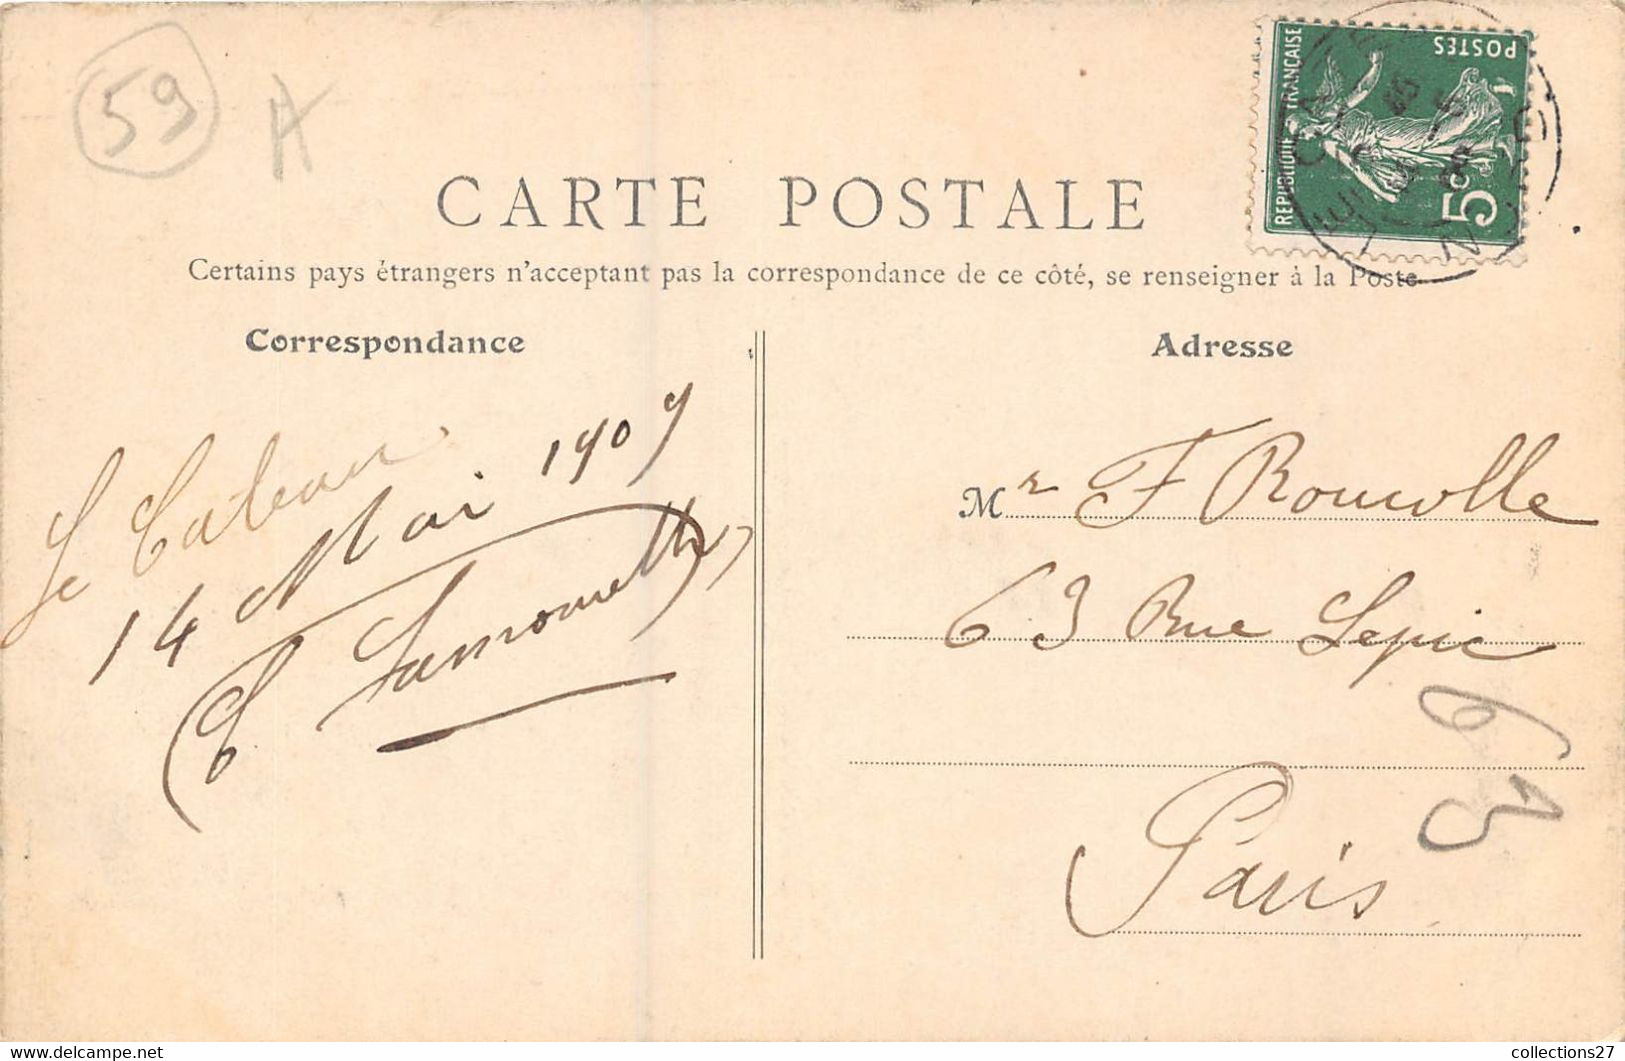 59
A
CARTE POSTALE
Certains pays étrangers n'acceptant pas la correspondance de ce côté, se renseigner à la Poste
REPUBLIQUE FRANÇAISE
POSTES
5c
Correspondance
Le Cateau
14 Mai 1909
Adresse
Mr F Roucolle
63 Rue Lepic
Paris
63
collections27